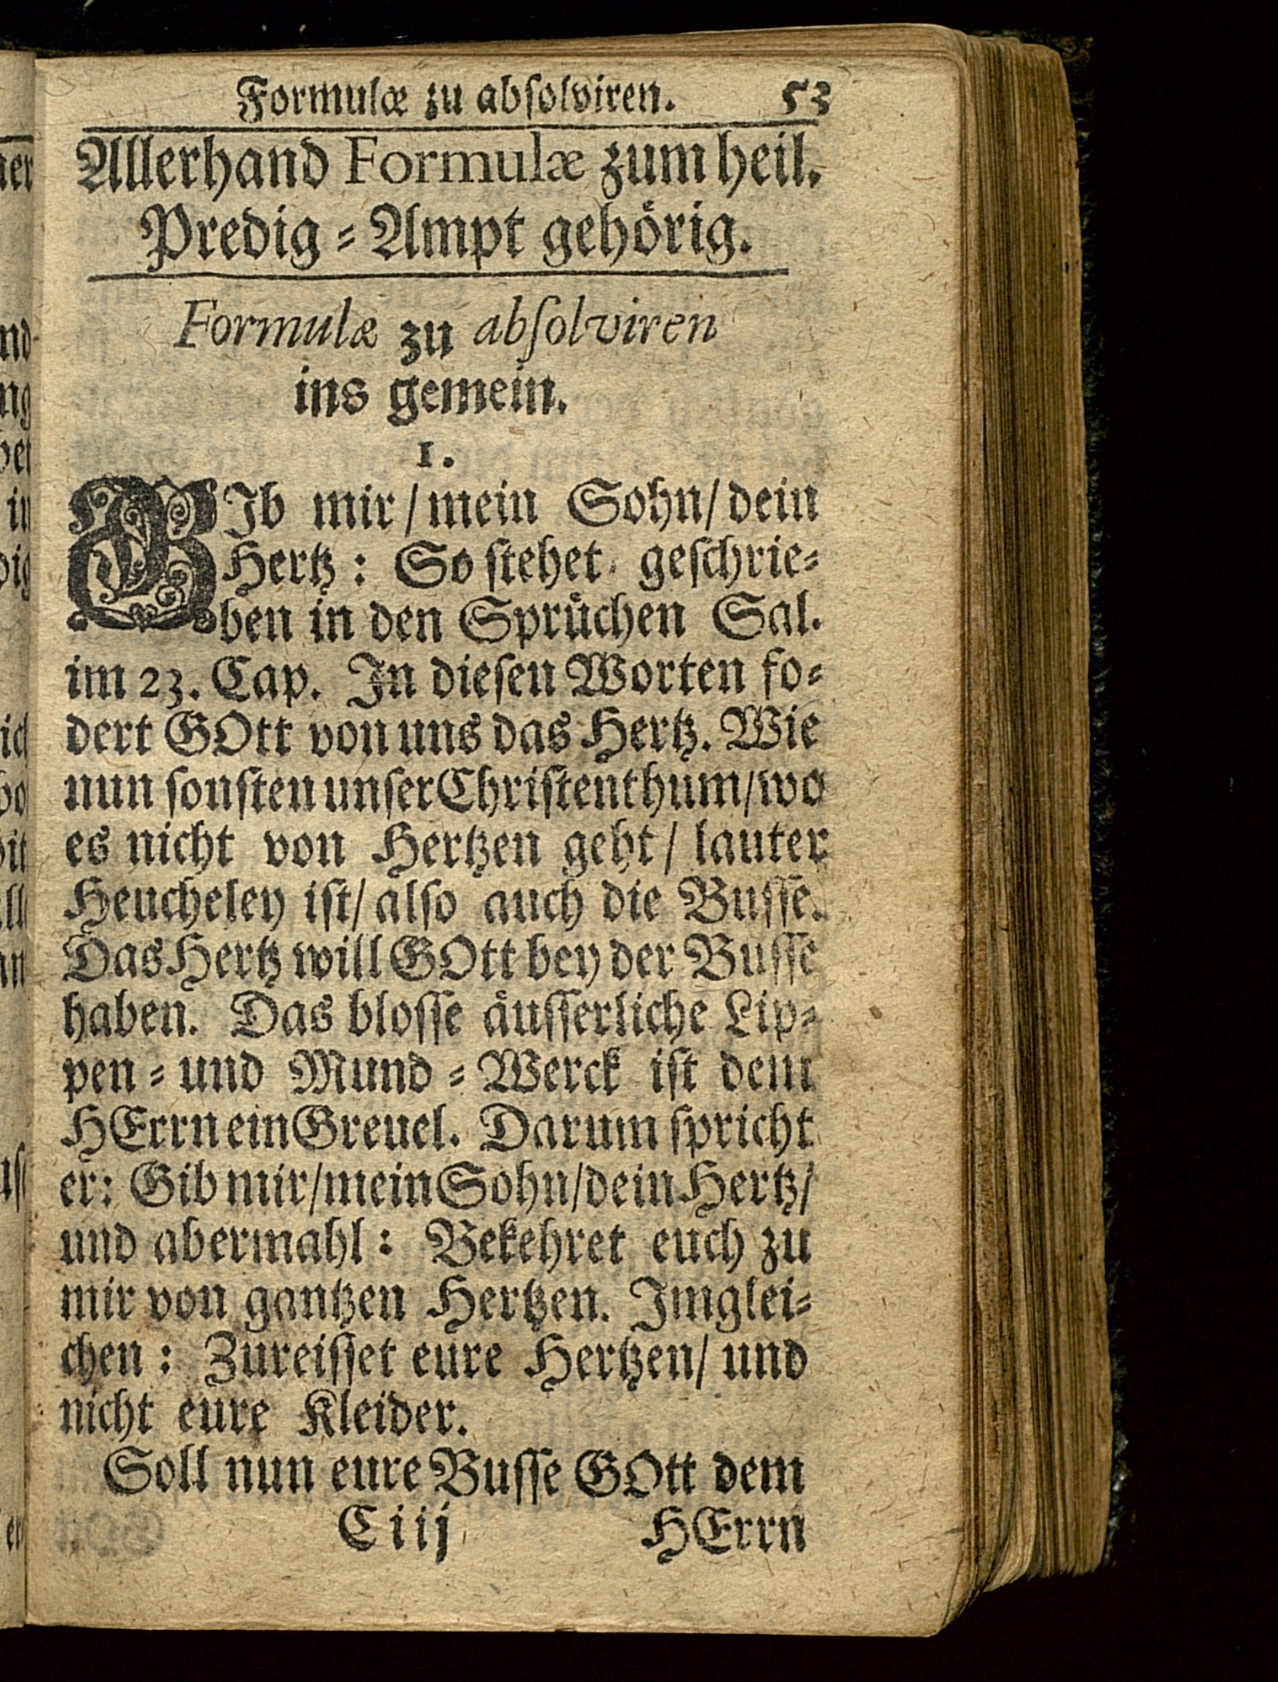 Formulæ zu abſolviren. 53
Allerhand Formulæ zum heil.
Predig-Ampt gehörig.
Formulæ zu abſolviren
ins gemein.
1.
GIb mir/mein Sohn/dein
Hertz: So ſtehet geſchrie-
ben in den Sprüchen Sal.
im 23. Cap. In dieſen Worten fo-
dert GOtt von uns das Hertz. Wie
nun ſonſten unſer Chriſtenthum/wo
es nicht von Hertzen geht/ lauter
Heucheley iſt/ alſo auch die Buſſe.
Das Hertz will GOtt bey der Buſſe
haben. Das bloſſe äuſſerliche Lip-
pen-und Mund-Werck iſt dem
HErrn ein Greuel. Darum ſpricht
er: Gib mir/mein Sohn/dein Hertz/
und abermahl: Bekehret euch zu
mir von gantzen Hertzen. Imglei-
chen: Zureiſſet eure Hertzen/ und
nicht eure Kleider.
Soll nun eure Buſſe GOtt dem
Ciij HErrn